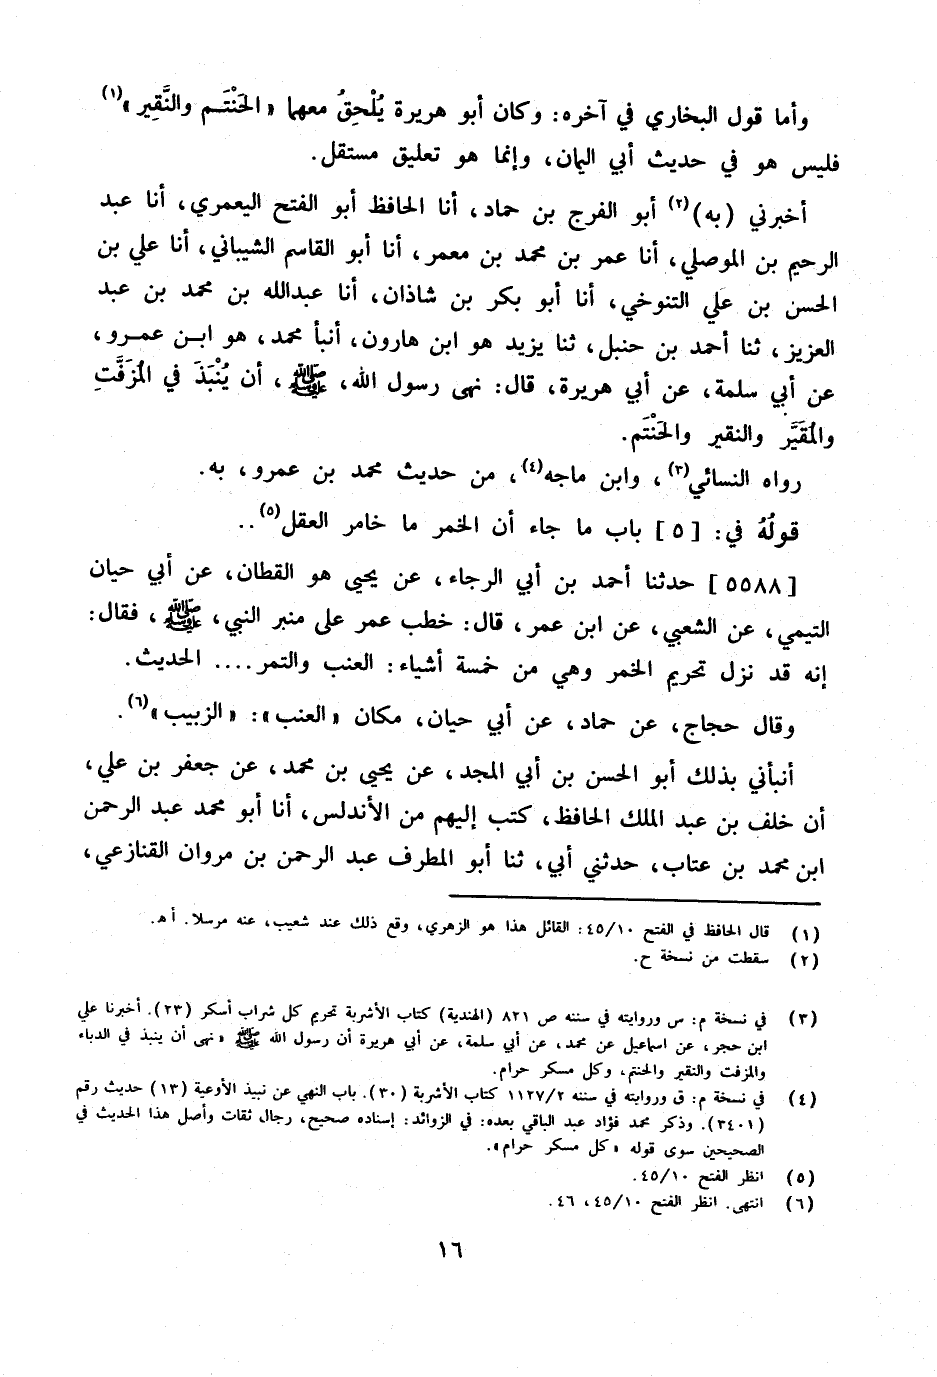 وأما قول البخاري في آخره: وكان أبو هريرة يُلْحِقُ معهما «الحَنْتَـم والنَّقِير»(١)
فليس هو في حديث أبي اليمان، وإنما هو تعليق مستقل.
أخبرني (به)(٢) أبو الفرج بن حماد، أنا الحافظ أبو الفتح اليعمري، أنا عبد
الرحيم بن الموصلي، أنا عمر بن محمد بن معمر، أنا أبو القاسم الشيباني، أنا علي بن
الحسن بن علي التنوخي، أنا أبو بكر بن شاذان، أنا عبدالله بن محمد بن عبد
العزيز، ثنا أحمد بن حنبل، ثنا يزيد هو ابن هارون، أنبأ محمد، هو ابـن عمـرو،
عن أبي سلمة، عن أبي هريرة، قال: نهى رسول الله، ﷺ، أن يُنْبَذَ في المُزَفَّتِ
والمُقَيَّر والنقير والحَنْتَم.
رواه النسائي(٣)، وابن ماجه(٤)، من حديث محمد بن عمرو، به.
قولُهُ في: [٥] باب ما جاء أن الخمر ما خامر العقل(٥)..
[٥٥٨٨] حدثنا أحمد بن أبي الرجاء، عن يحيى هو القطان، عن أبي حيان
التيمي، عن الشعبي، عن ابن عمر، قال: خطب عمر على منبر النبي، ﷺ، فقال:
إنه قد نزل تحريم الخمر وهي من خمسة أشياء: العنب والتمر.... الحديث.
وقال حجاج، عن حماد، عن أبي حيان، مكان «العنب»: «الزبيب»(٦).
أنبأني بذلك أبو الحسن بن أبي المجد، عن يحيى بن محمد، عن جعفر بن علي،
أن خلف بن عبد الملك الحافظ، كتب إليهم من الأندلس، أنا أبو محمد عبد الرحمن
ابن محمد بن عتاب، حدثني أبي، ثنا أبو المطرف عبد الرحمن بن مروان القنازعي،
(١) قال الحافظ في الفتح ٤٥/١٠: القائل هذا هو الزهري، وقع ذلك عند شعيب، عنه مرسلا. أهـ.
(٢) سقطت من نسخة ح.
(٣) في نسخة م: س وروايته في سننه ص ٨٢١ (الهندية) كتاب الأشربة تحريم كل شراب أسكر (٢٣). أخبرنا علي
ابن حجر، عن اسماعيل عن محمد، عن أبي سلمة، عن أبي هريرة أن رسول الله ﷺ «نهى أن ينبذ في الدباء
والمزفت والنقير والحنتم، وكل مسكر حرام.
(٤) في نسخة م: ق وروايته في سننه ١١٢٧/٢ كتاب الأشربة (٣٠). باب النهي عن نبيذ الأوعية (١٣) حديث رقم
(٣٤٠١). وذكر محمد فؤاد عبد الباقي بعده: في الزوائد: إسناده صحيح، رجال ثقات وأصل هذا الحديث في
الصحيحين سوى قوله «كل مسكر حرام».
(٥) انظر الفتح ٤٥/١٠.
(٦) انتهى. انظر الفتح ٤٥/١٠، ٤٦.
١٦